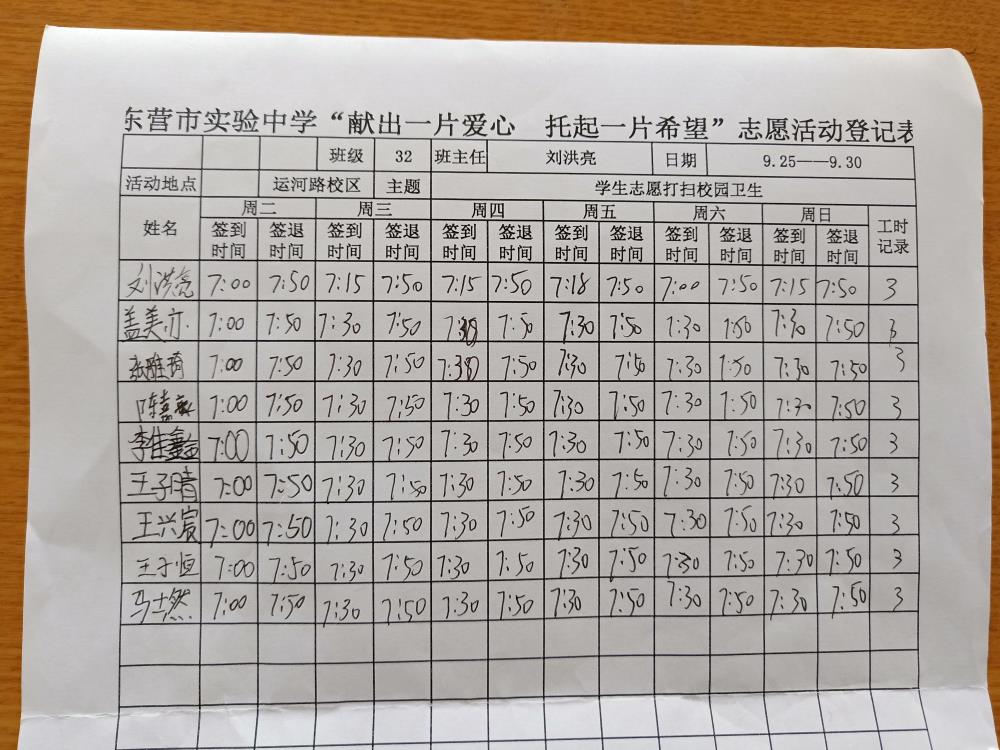 东营市实验中学“献出一片爱心 托起一片希望”志愿活动登记表
班级 32 班主任 刘洪亮 日期 9.25——9.30
活动地点 运河路校区 主题 学生志愿打扫校园卫生
姓名 周二 周三 周四 周五 周六 周日 工时记录
签到时间 签退时间 签到时间 签退时间 签到时间 签退时间 签到时间 签退时间 签到时间 签退时间 签到时间 签退时间
刘洪亮 7:00 7:50 7:15 7:50 7:15 7:50 7:18 7:50 7:00 7:50 7:15 7:50 3
盖美亦 7:00 7:50 7:30 7:50 7:30 7:50 7:30 7:50 7:30 7:50 7:30 7:50 3
张雅琦 7:00 7:50 7:30 7:50 7:30 7:50 7:30 7:50 7:30 7:50 7:30 7:50 3
陈嘉 7:00 7:50 7:30 7:50 7:30 7:50 7:30 7:50 7:30 7:50 7:30 7:50 3
李佳鑫 7:00 7:50 7:30 7:50 7:30 7:50 7:30 7:50 7:30 7:50 7:30 7:50 3
王子晴 7:00 7:50 7:30 7:50 7:30 7:50 7:30 7:50 7:30 7:50 7:30 7:50 3
王兴宸 7:00 7:50 7:30 7:50 7:30 7:50 7:30 7:50 7:30 7:50 7:30 7:50 3
王子恒 7:00 7:50 7:30 7:50 7:30 7:50 7:30 7:50 7:30 7:50 7:30 7:50 3
马士然 7:00 7:50 7:30 7:50 7:30 7:50 7:30 7:50 7:30 7:50 7:30 7:50 3